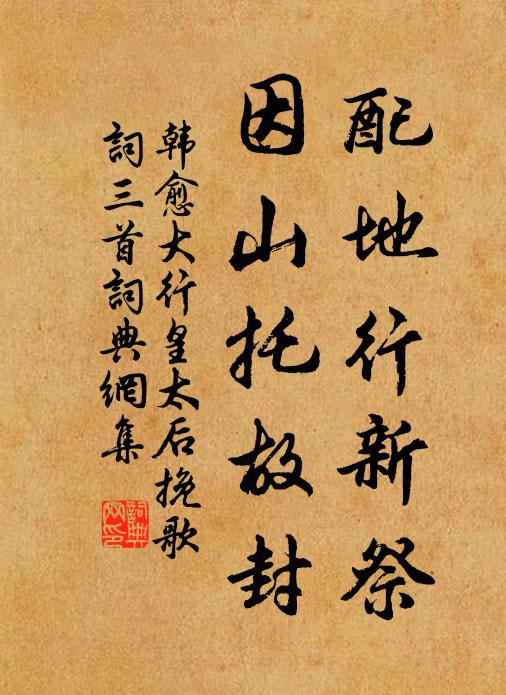 配地行新祭
因山托故封
韩愈大行皇太后挽歌
詞三首詞典網集
詞典
网印